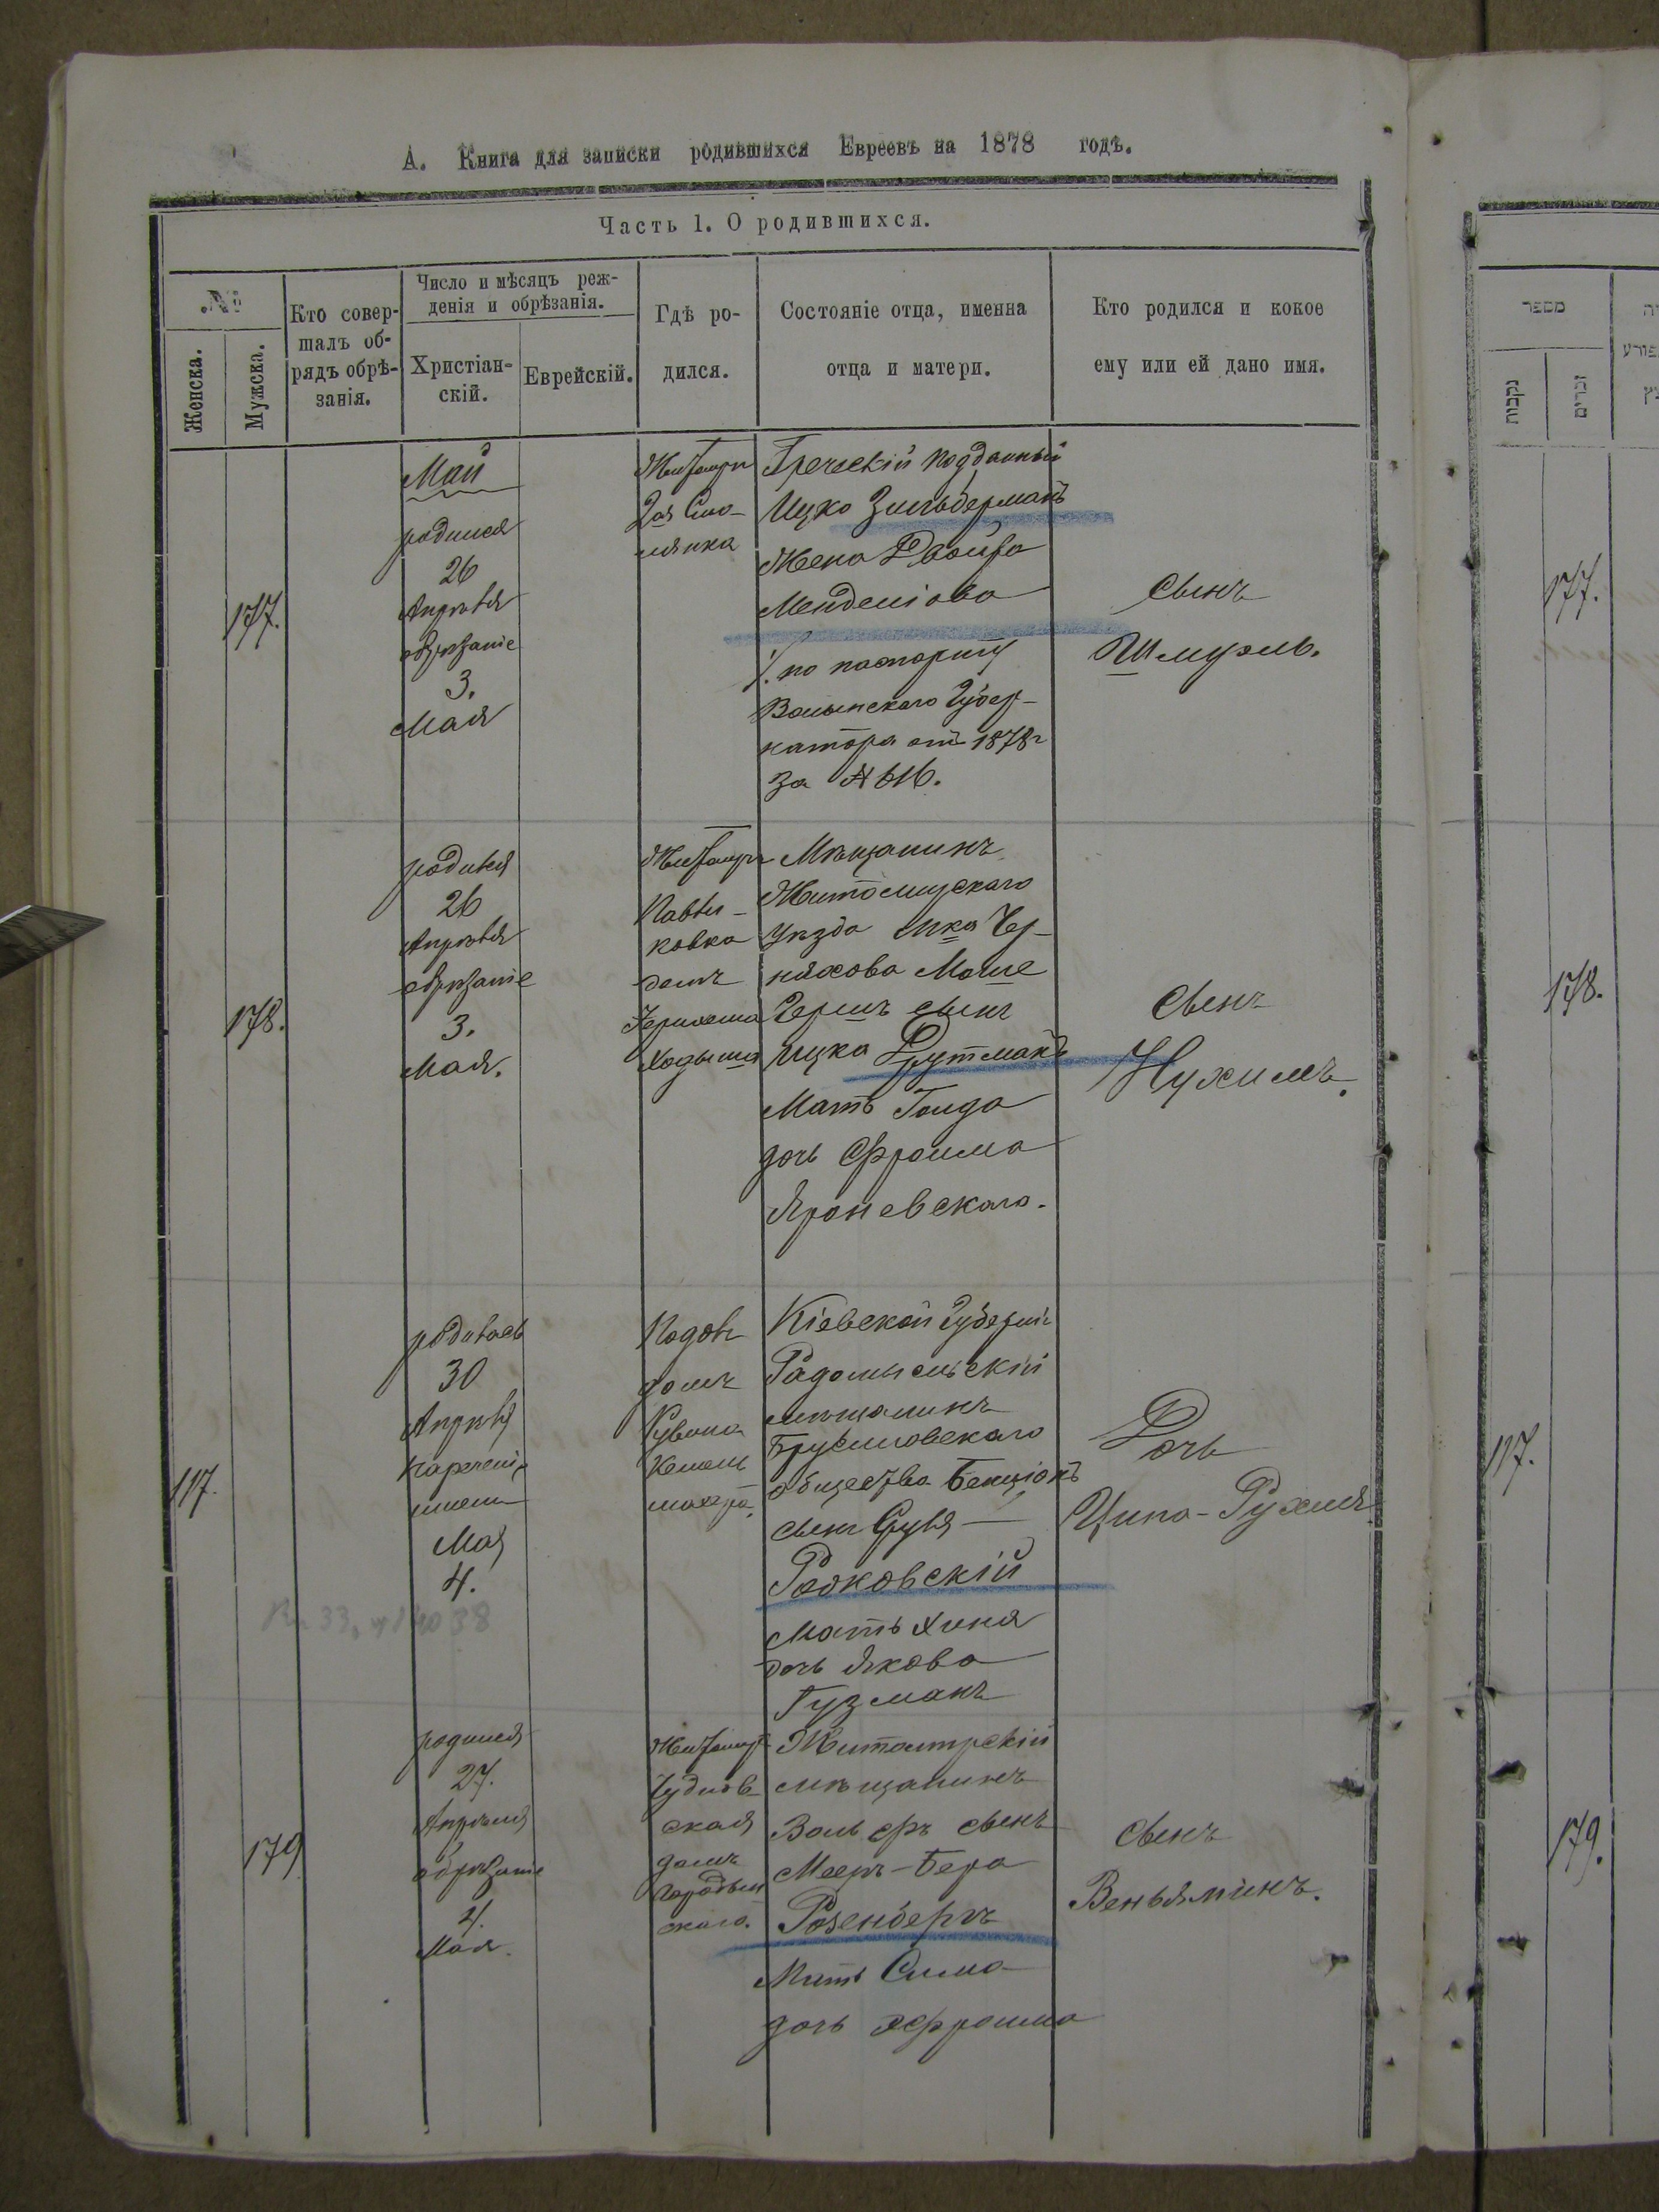 А. Книга для записки родившихся Евреевъ на 1878 годъ.
Часть 1. О родившихся.
№
Женска.
Мужска.
Кто совер-
шалъ об-
рядъ обрѣ-
занія.
Число и мѣсяцъ реж-
денія и обрѣзанія.
Христіан-
скій.
Еврейскій.
Гдѣ ро-
дился.
Состояніе отца, именна
отца и матери.
Кто родился и кокое
ему или ей дано имя.
177.
Май
родился
26
Апрѣля
обрѣзаніе
3.
Мая
Житомръ
2ая Смо-
лянка
Греческій подданный
Ицко Зильберманъ
Жена Двойра
Менделіова
по паспорту
Волынскаго Губер-
натора отъ 1878г
За № 616.
Сынъ
Шмуэль.
178.
родился
26
Апрѣля
обрѣзаніе
3.
Мая.
Житомръ
Павли-
ковка
домъ
Мѣщанинъ
Житомирскаго
Уѣзда мка Чер-
няхова Моше
Гершъ сынъ
Ицка Трутманъ
Мать Голда
дочь Эфроима
Яроневскаго.
Сынъ
Нухимъ.
117.
родилась
30
Апрѣля
нареченіе
имени
Мая
4.
домъ
Рувина
Кіевской Губерніи
Радомысльскій
мѣщанинъ
Брусиловскаго
общества Бенціонъ
сынъ Сруля
Ратковскій
Мать Хиня
дочь Якова
Гузманъ
Дочь
Ципа-Рухля.
179
родился
27.
Апрѣля
обрѣзаніе
4.
Мая.
Житомръ
Чуднов-
ская
домъ
Городец-
скаго.
Житомирскій
мѣщанинъ
Вольфъ сынъ
Мееръ-Бера
Розенбергъ
Мать Сима
дочь Эфроима
Сынъ
Веньяминъ.
מספר
נקבות
זכרים
177.
178.
117.
179.